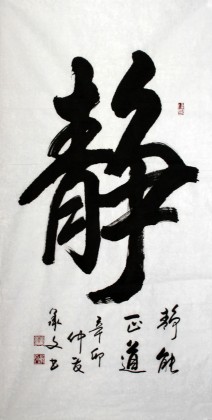 静
静能
正道
辛卯
仲夏
文书